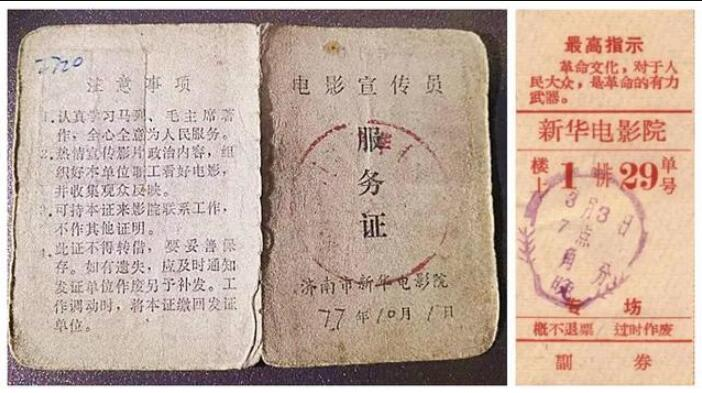 7720
注意事项
1.认真学习马列、毛主席著
作，全心全意为人民服务。
2.热情宣传影片政治内容，组
织好本单位职工看好电影，
并收集观众反映。
3.可持本证来影院联系工作，
不作其他证明。
4.此证不得转借，要妥善保
存。如有遗失，应及时通知
发证单位作废另予补发。工
作调动时，将本证缴回发证
单位。
电影宣传员
服务证
济南市新华电影院
77年10月1日
最高指示
革命文化，对于人
民大众，是革命的有力
武器。
新华电影院
楼上1排29单号
3月3日
7点 分
晚
专场
概不退票/过时作废
副券